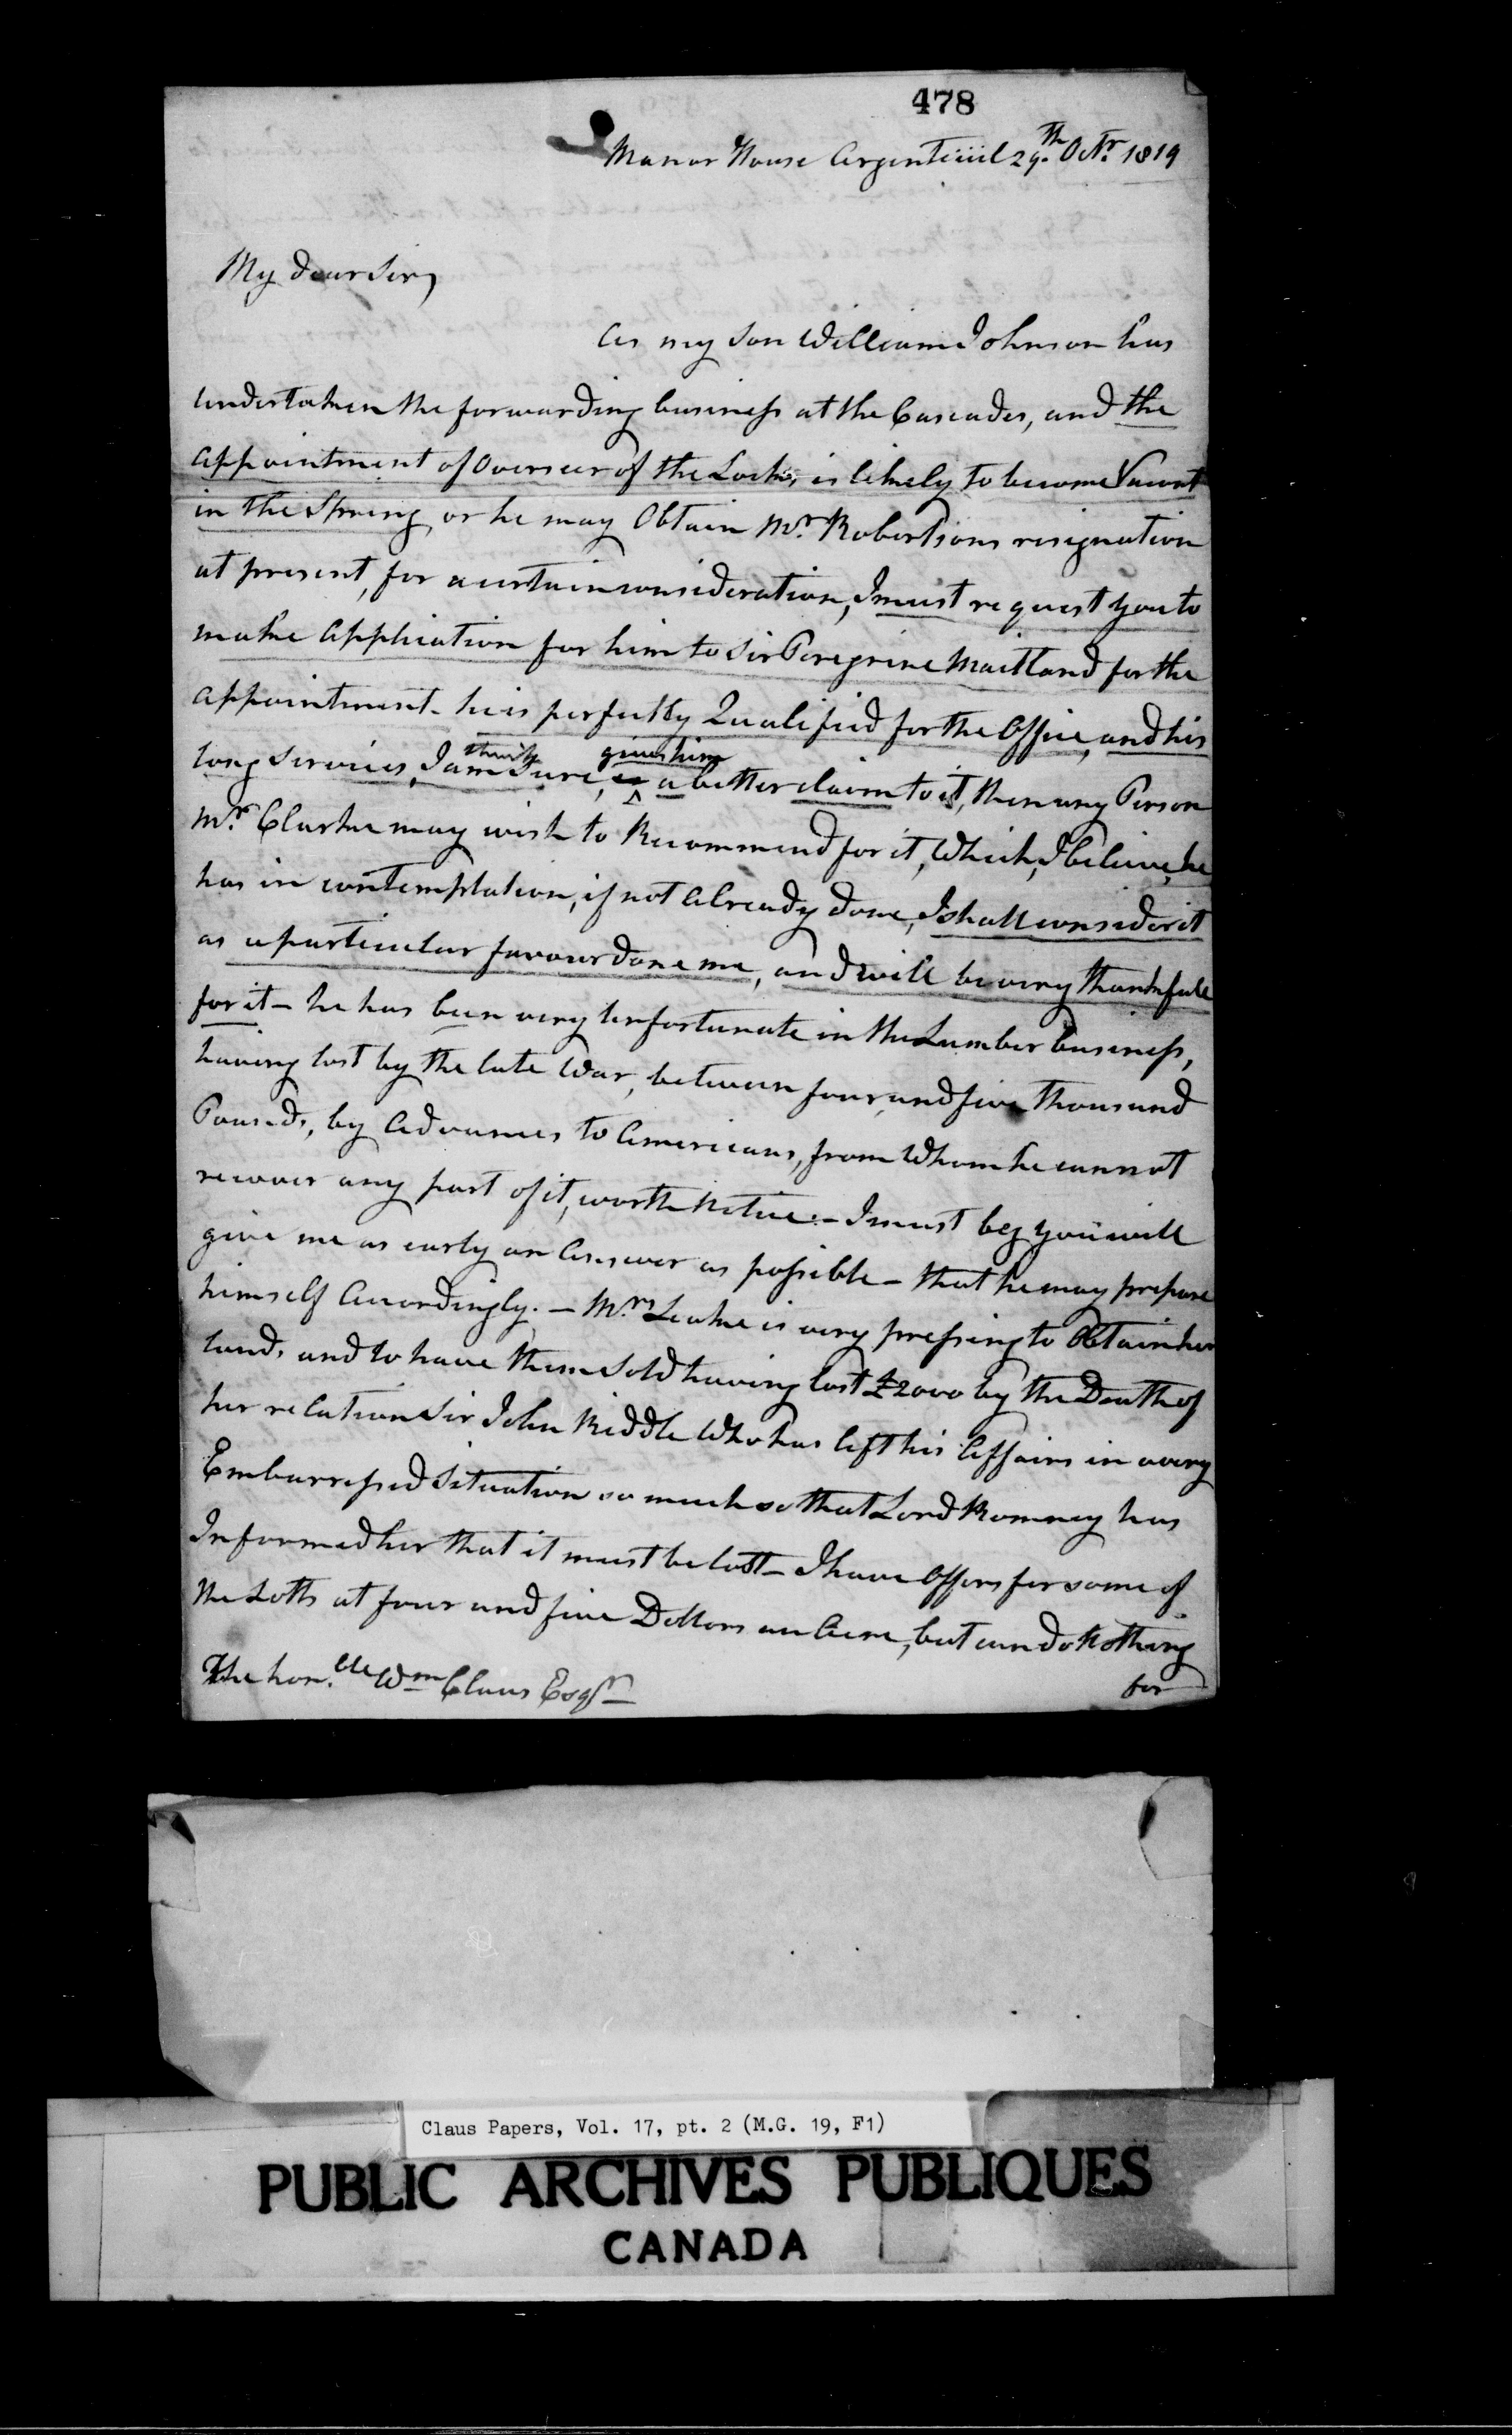 478
Manor House Argenteuil 29.th Octr. 1819
My dear Sir,
As my Son William Johnson has
undertaken the forwarding business at the Cascades, and the
appointment of Overseer of the Locks, is likely to become Vacant
in the Spring, or he may Obtain Mr. Robertsons resignation
at present, for a certain consideration, I must request you to
make Application for him to Sir Peregrine Maitland for the
appointment - he is perfectly Qualified for the Office, and his
think gives him
long Services, I am Sure, is a better claim to it, then any Person
Mr. Clarke may wish to Recommend for it, Which, I believe, he
has in contemplation, if not already done, I shall consider it
as a particular favour done me, and will be very thankfull
for it - he has been very unfortunate in the Lumber business,
having lost by the late War, between four and five thousand
Pounds, by Advances to Americans, from Whom he cannot
recover any part of it, worth Notice. - I must beg you will
give me as early an Answer as possible - that he may prepare
himself Accordingly. - Mrs. Leake is very pressing to Obtain her
lands and to have them Sold having lost £2000 by the Death of
her relation Sir John Riddle Who has left his Affairs in a very
Embarressed Situation so much so that Lord Romney has
Informed her that it must be lost - I have Offers for some of
the Lotts at four and five Dollars an Acre, but can do Nothing
for
The hon.ble Wm Claus Esqr
Claus Papers, Vol. 17, pt. 2 (M.G. 19, F1)
PUBLIC ARCHIVES PUBLIQUES
CANADA